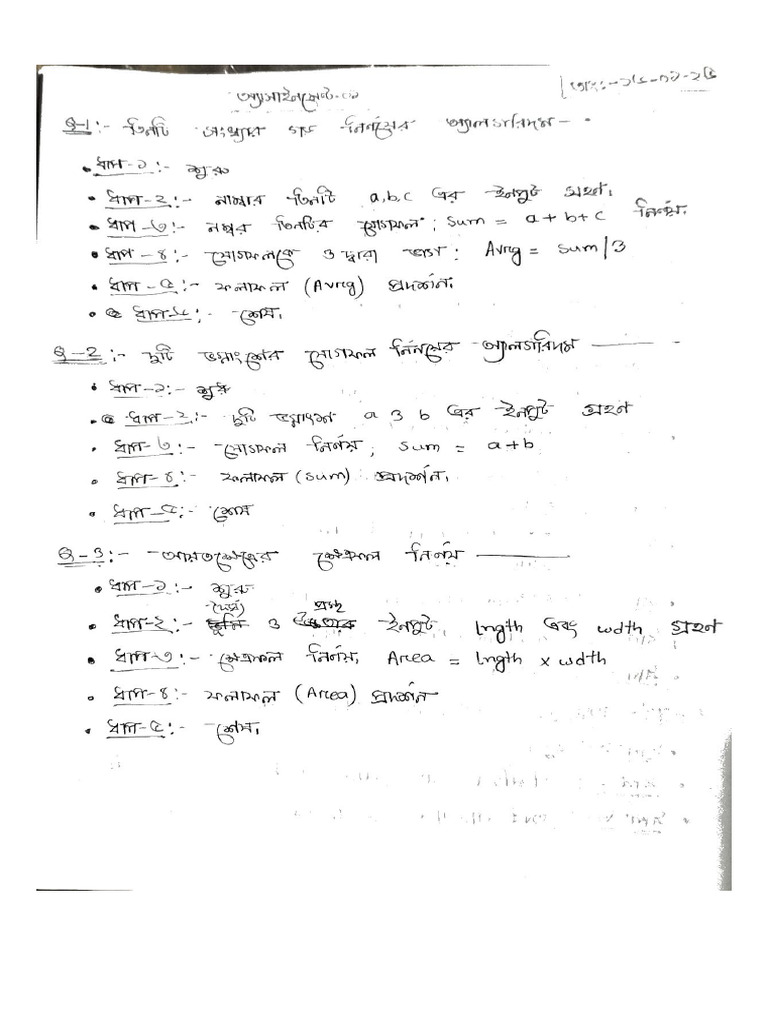 তাং:-২৫-০১-২৫
অ্যাসাইনমেন্ট-০১
Q-1:- তিনটি সংখ্যার গড় নির্ণয়ের অ্যালগরিদম-
• ধাপ-১:- শুরু
• ধাপ-২:- নাম্বার তিনটি a,b,c এর ইনপুট গ্রহণ।
• ধাপ-৩:- নম্বর তিনটির যোগফল; Sum = a+b+c নির্ণয়।
• ধাপ-৪:- যোগফলকে ৩ দ্বারা ভাগ: Avrg = sum/3
• ধাপ-৫:- ফলাফল (Avrg) প্রদর্শন।
• ধাপ-৬:- শেষ।
Q-2:- দুটি ভগ্নাংশের যোগফল নির্নয়ের অ্যালগরিদম
• ধাপ-১:- শুরু
• ধাপ-২:- দুটি ভগ্নাংশ a ও b এর ইনপুট গ্রহণ
• ধাপ-৩:- যোগফল নির্ণয়; sum = a+b
• ধাপ-৪:- ফলাফল (sum) প্রদর্শন।
• ধাপ-৫:- শেষ
Q-3:- আয়তক্ষেত্রের ক্ষেত্রফল নির্ণয়
• ধাপ-১:- শুরু
দৈর্ঘ্য প্রস্থ
• ধাপ-২:- ভূমি ও ইনপুট, lngth এবং wdth গ্রহণ
• ধাপ-৩:- ক্ষেত্রফল নির্ণয়, Area = lngth x wdth
• ধাপ-৪:- ফলাফল (Area) প্রদর্শন
• ধাপ-৫:- শেষ।